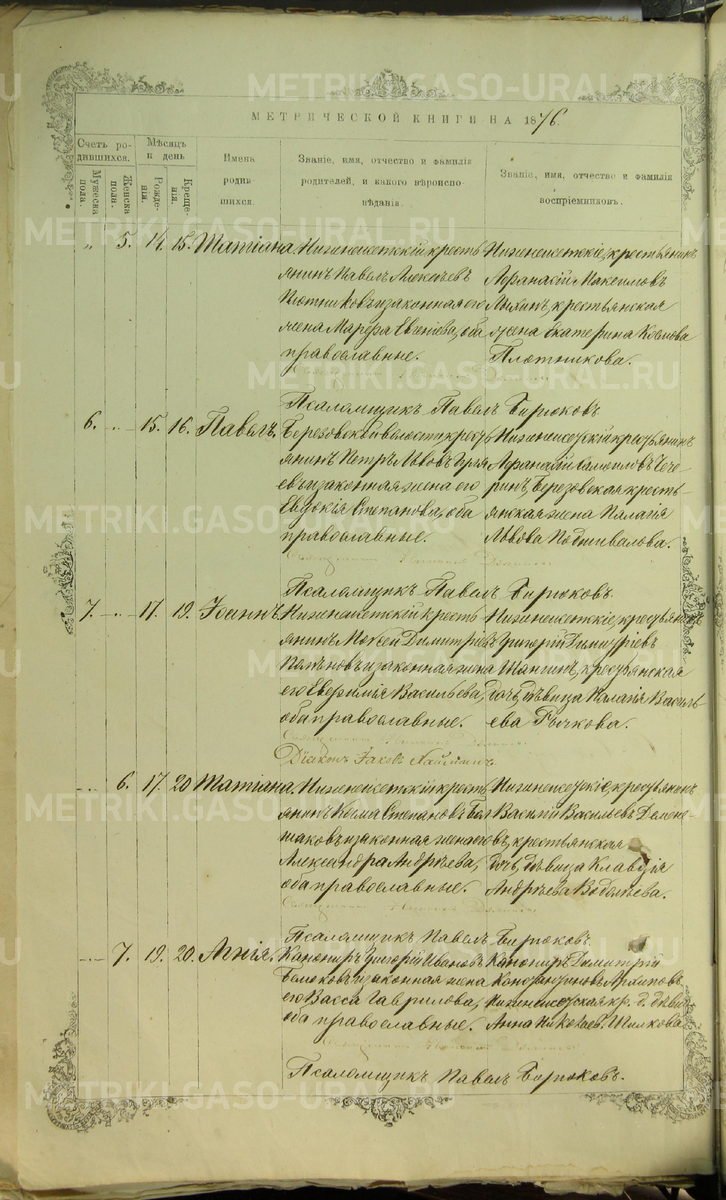 METRIKI.GASO-URAL.RU
МЕТРИЧЕСКОЙ КНИГИ НА 1876.
Счетъ родившихся.
Мужеска пола.
Женска пола.
Мѣсяцъ и день
Рожденія.
Крещенія.
Имена родившихся.
Званіе, имя, отчество и фамилія родителей, и какого вѣроисповѣданія.
Званіе, имя, отчество и фамилія воспріемниковъ.
„ 5. 14. 15. Татіана.
Нижнеисетскій кресть
янинъ Павелъ Алексѣевъ
Плотниковъ и законная его
жена Марѳа Евгеніева, оба
православные.
Нижнеисетскіе, крестьянинъ
Аѳанасій Максимовъ
крестьянская
жена Екатерина Козмова
Плотникова.
Псаломщикъ Павелъ Бирюковъ
6. „ 15. 16. Павелъ.
Березовской волости крест
янинъ Петръ Львовъ
евъ и законная жена его
Евдокія Степанова, оба
православные.
Нижнеисетскій крестьянинъ
Аѳанасій Самойловъ Чече
ринъ, Березовская кресть-
янская жена Палагія
Львова Подшивалова.
Псаломщикъ Павелъ Бирюковъ.
7. „ 17. 19. Іоаннъ
Нижнеисетскій кресть
янинъ Моѵсей Димитріев
и законная жена
его Евѳимія Васильева,
оба православные.
Нижнеисетскіе, крестьянинъ
Григорій Димитріевъ
Шангинъ, крестьянская
дочь дѣвица Палагія Василь
ева Бычкова.
Діаконъ Іаковъ
„ 6. 17. 20 Татіана
Нижнеисетскій кресть
янинъ Козма Степановъ Бол
шаковъ и законная жена его
Александра Андрѣева,
оба православные.
Нижнеисетскіе, крестьянинъ
Василій Васильевъ
овъ, крестьянская
дочь дѣвица Клавдія
Андрѣева Водолѣева.
Псаломщикъ Павелъ Бирюковъ
„ 7. 19. 20. Агнія.
Канониръ Григорій Ивановъ
и законная жена
его Васса Гаврилова,
оба православные.
Канониръ Димитрій
Константиновъ Архиповъ
Нижнеисетская кр. д. дѣвица
Анна Николаев. Шилкова
Псаломщикъ Павелъ Бирюковъ.